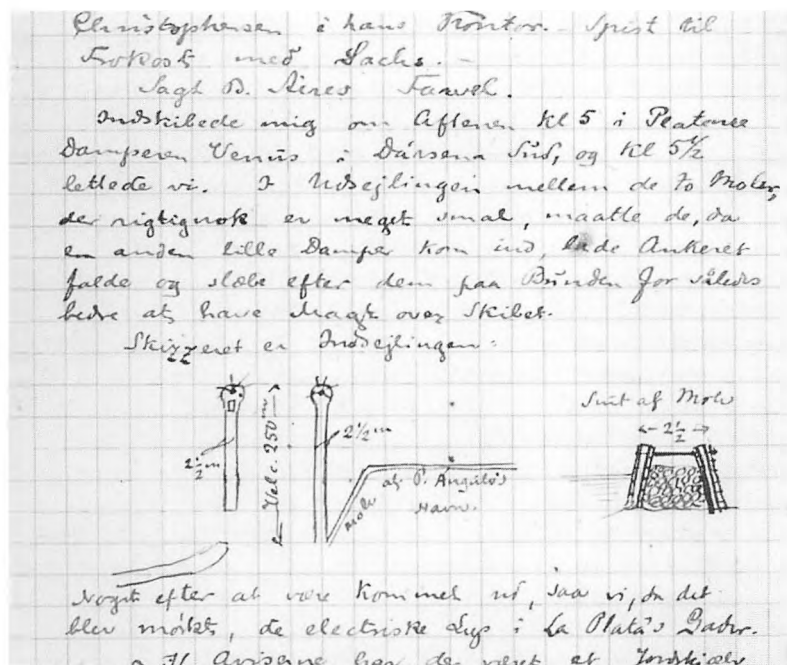 Christophersen i hans Kontor. – Spist til
Frokost med Sachs. –
Sagt B. Aires Farvel.
Indskibede mig om Aftenen Kl 5 i Platense
Damperen Venus i Dársena Sud, og Kl 5½
lettede vi. I Udsejlingen mellem de to Moler,
der rigtignok er meget smal, maatte de, da
en anden lille Damper kom ind, lade Ankeret
falde og slæbe efter dem paa Bunden for således
bedre at have Magt over Skibet.
Skizzeret er Indsejlingen:
2½ m
Vel c. 250 m
2½ m
Mole
af P. Angulo's
Havn.
Snit af Mole
2½
Noget efter at være kommet ud, saa vi, da det
blev mørkt, de electriske Lys i La Plata's Gader.
Aviserne har der været et Jordskjælv